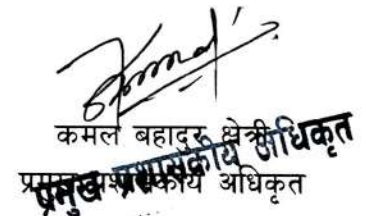 कमल बहादुर क्षेत्री
प्रमुख प्रशासकीय अधिकृत
प्रमुख प्रशासकीय अधिकृत